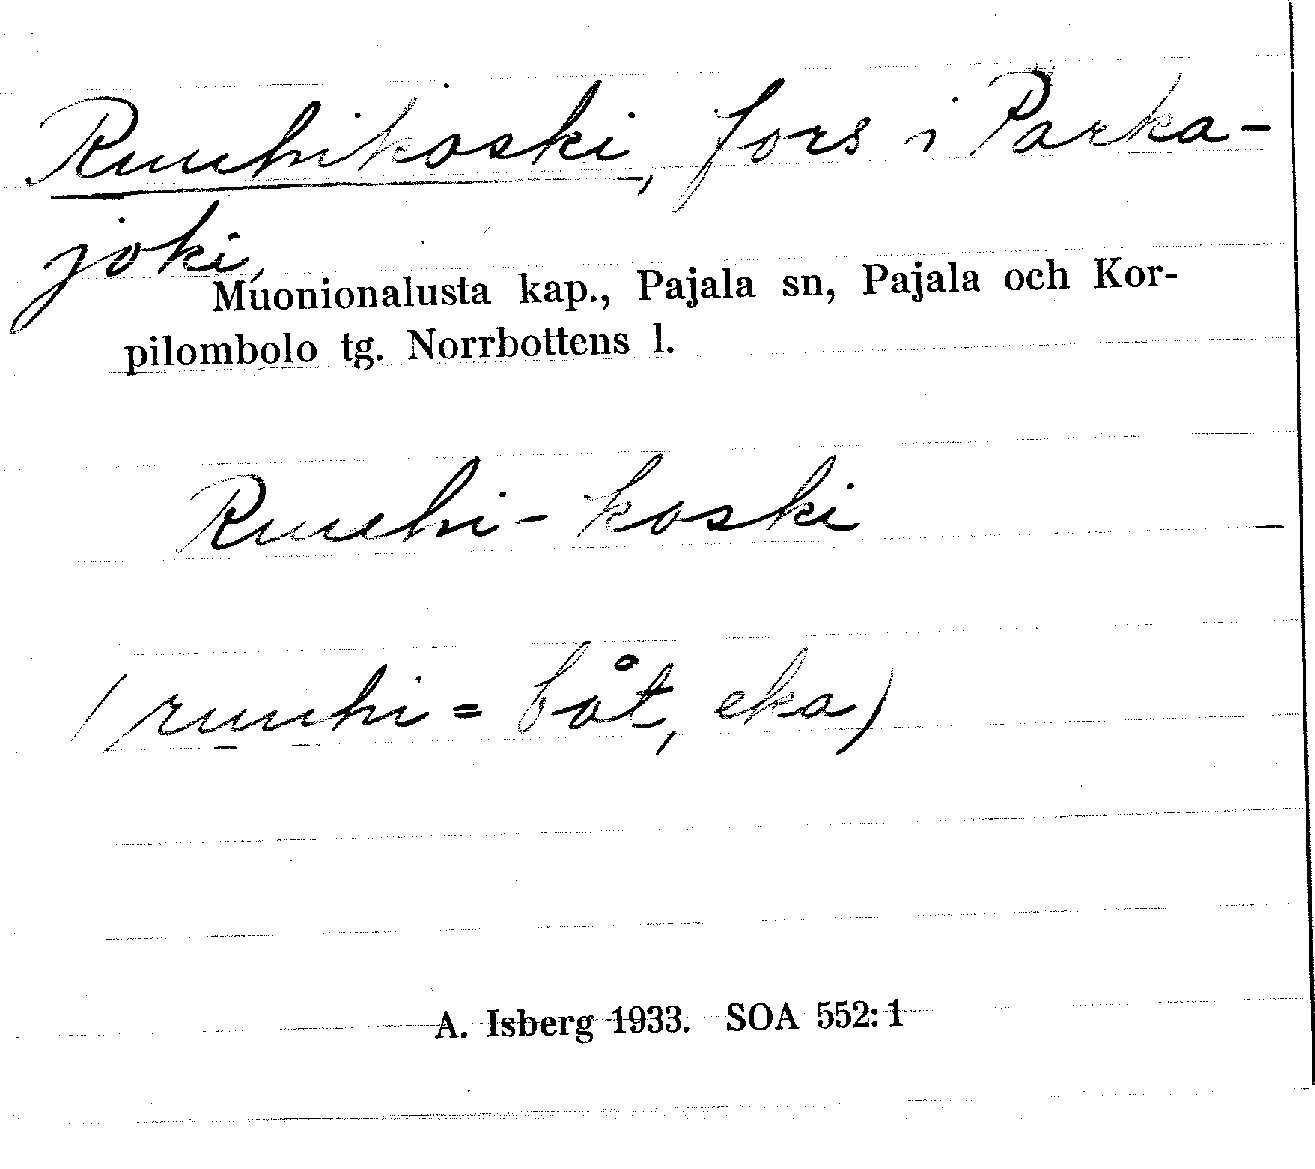 Ruuhikoski, fors i Parka-
joki,
Muonionalusta kap., Pajala sn, Pajala och Kor-
pilombolo tg. Norrbottens l.
Ruuhi-koski
(ruuhi = båt, eka)
A. Isberg 1933. SOA 552:1